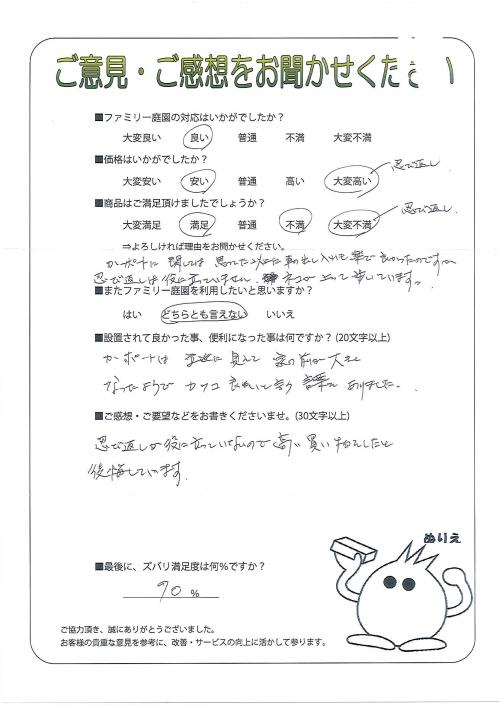 ご意見・ご感想をお聞かせください
■ファミリー庭園の対応はいかがでしたか？
大変良い 良い 普通 不満 大変不満
■価格はいかがでしたか？
忍び返し
大変安い 安い 普通 高い 大変高い
■商品はご満足頂けましたでしょうか？
忍び返し
大変満足 満足 普通 不満 大変不満
⇒よろしければ理由をお聞かせください。
カーポートに関しては思ってた以上に車の出し入れも楽で良かったのですが
忍び返しは役に立っていません。ネコが上って歩いています。
■またファミリー庭園を利用したいと思いますか？
はい どちらとも言えない いいえ
■設置されて良かった事、便利になった事は何ですか？(20文字以上)
カーポートは 見えて 家の前が大きく
なったようで カッコ良いと言う ありました。
■ご感想・ご要望などをお書きくださいませ。(30文字以上)
忍び返しが役に立っていないので高い買い物をしたと
後悔しています。
ぬりえ
■最後に、ズバリ満足度は何％ですか？
90 %
ご協力頂き、誠にありがとうございました。
お客様の貴重な意見を参考に、改善・サービスの向上に活かして参ります。